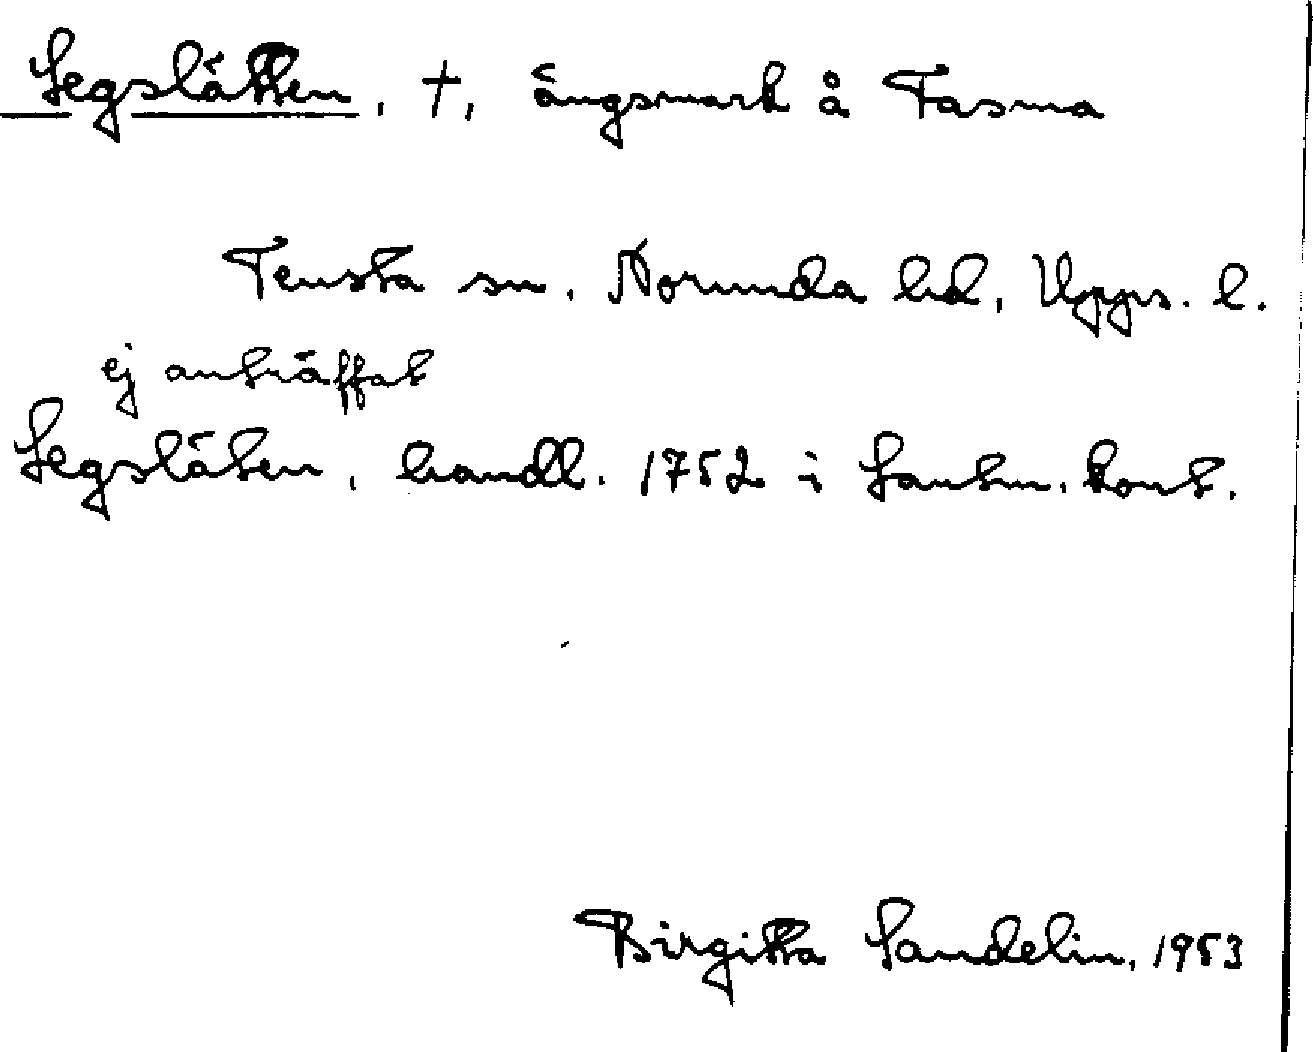 Legslätten, †, ängsmark å Tasma
Tensta sn, Norunda hd, Upps. l.
ej anträffat
Legsläten, handl. 1752 i Lantm. kont.
Birgitta Landelin, 1953